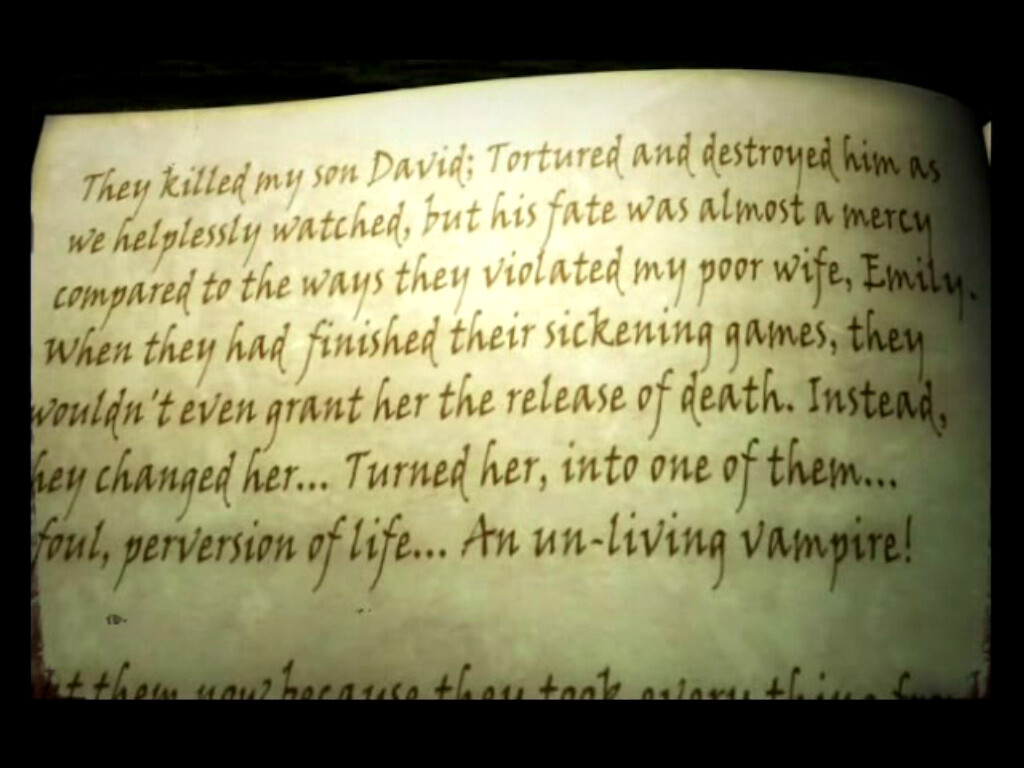 They killed my son David; Tortured and destroyed him as
we helplessly watched, but his fate was almost a mercy
compared to the ways they violated my poor wife, Emily.
When they had finished their sickening games, they
wouldn't even grant her the release of death. Instead,
hey changed her... Turned her, into one of them...
foul, perversion of life... An un-living vampire!
them now because they took every thing